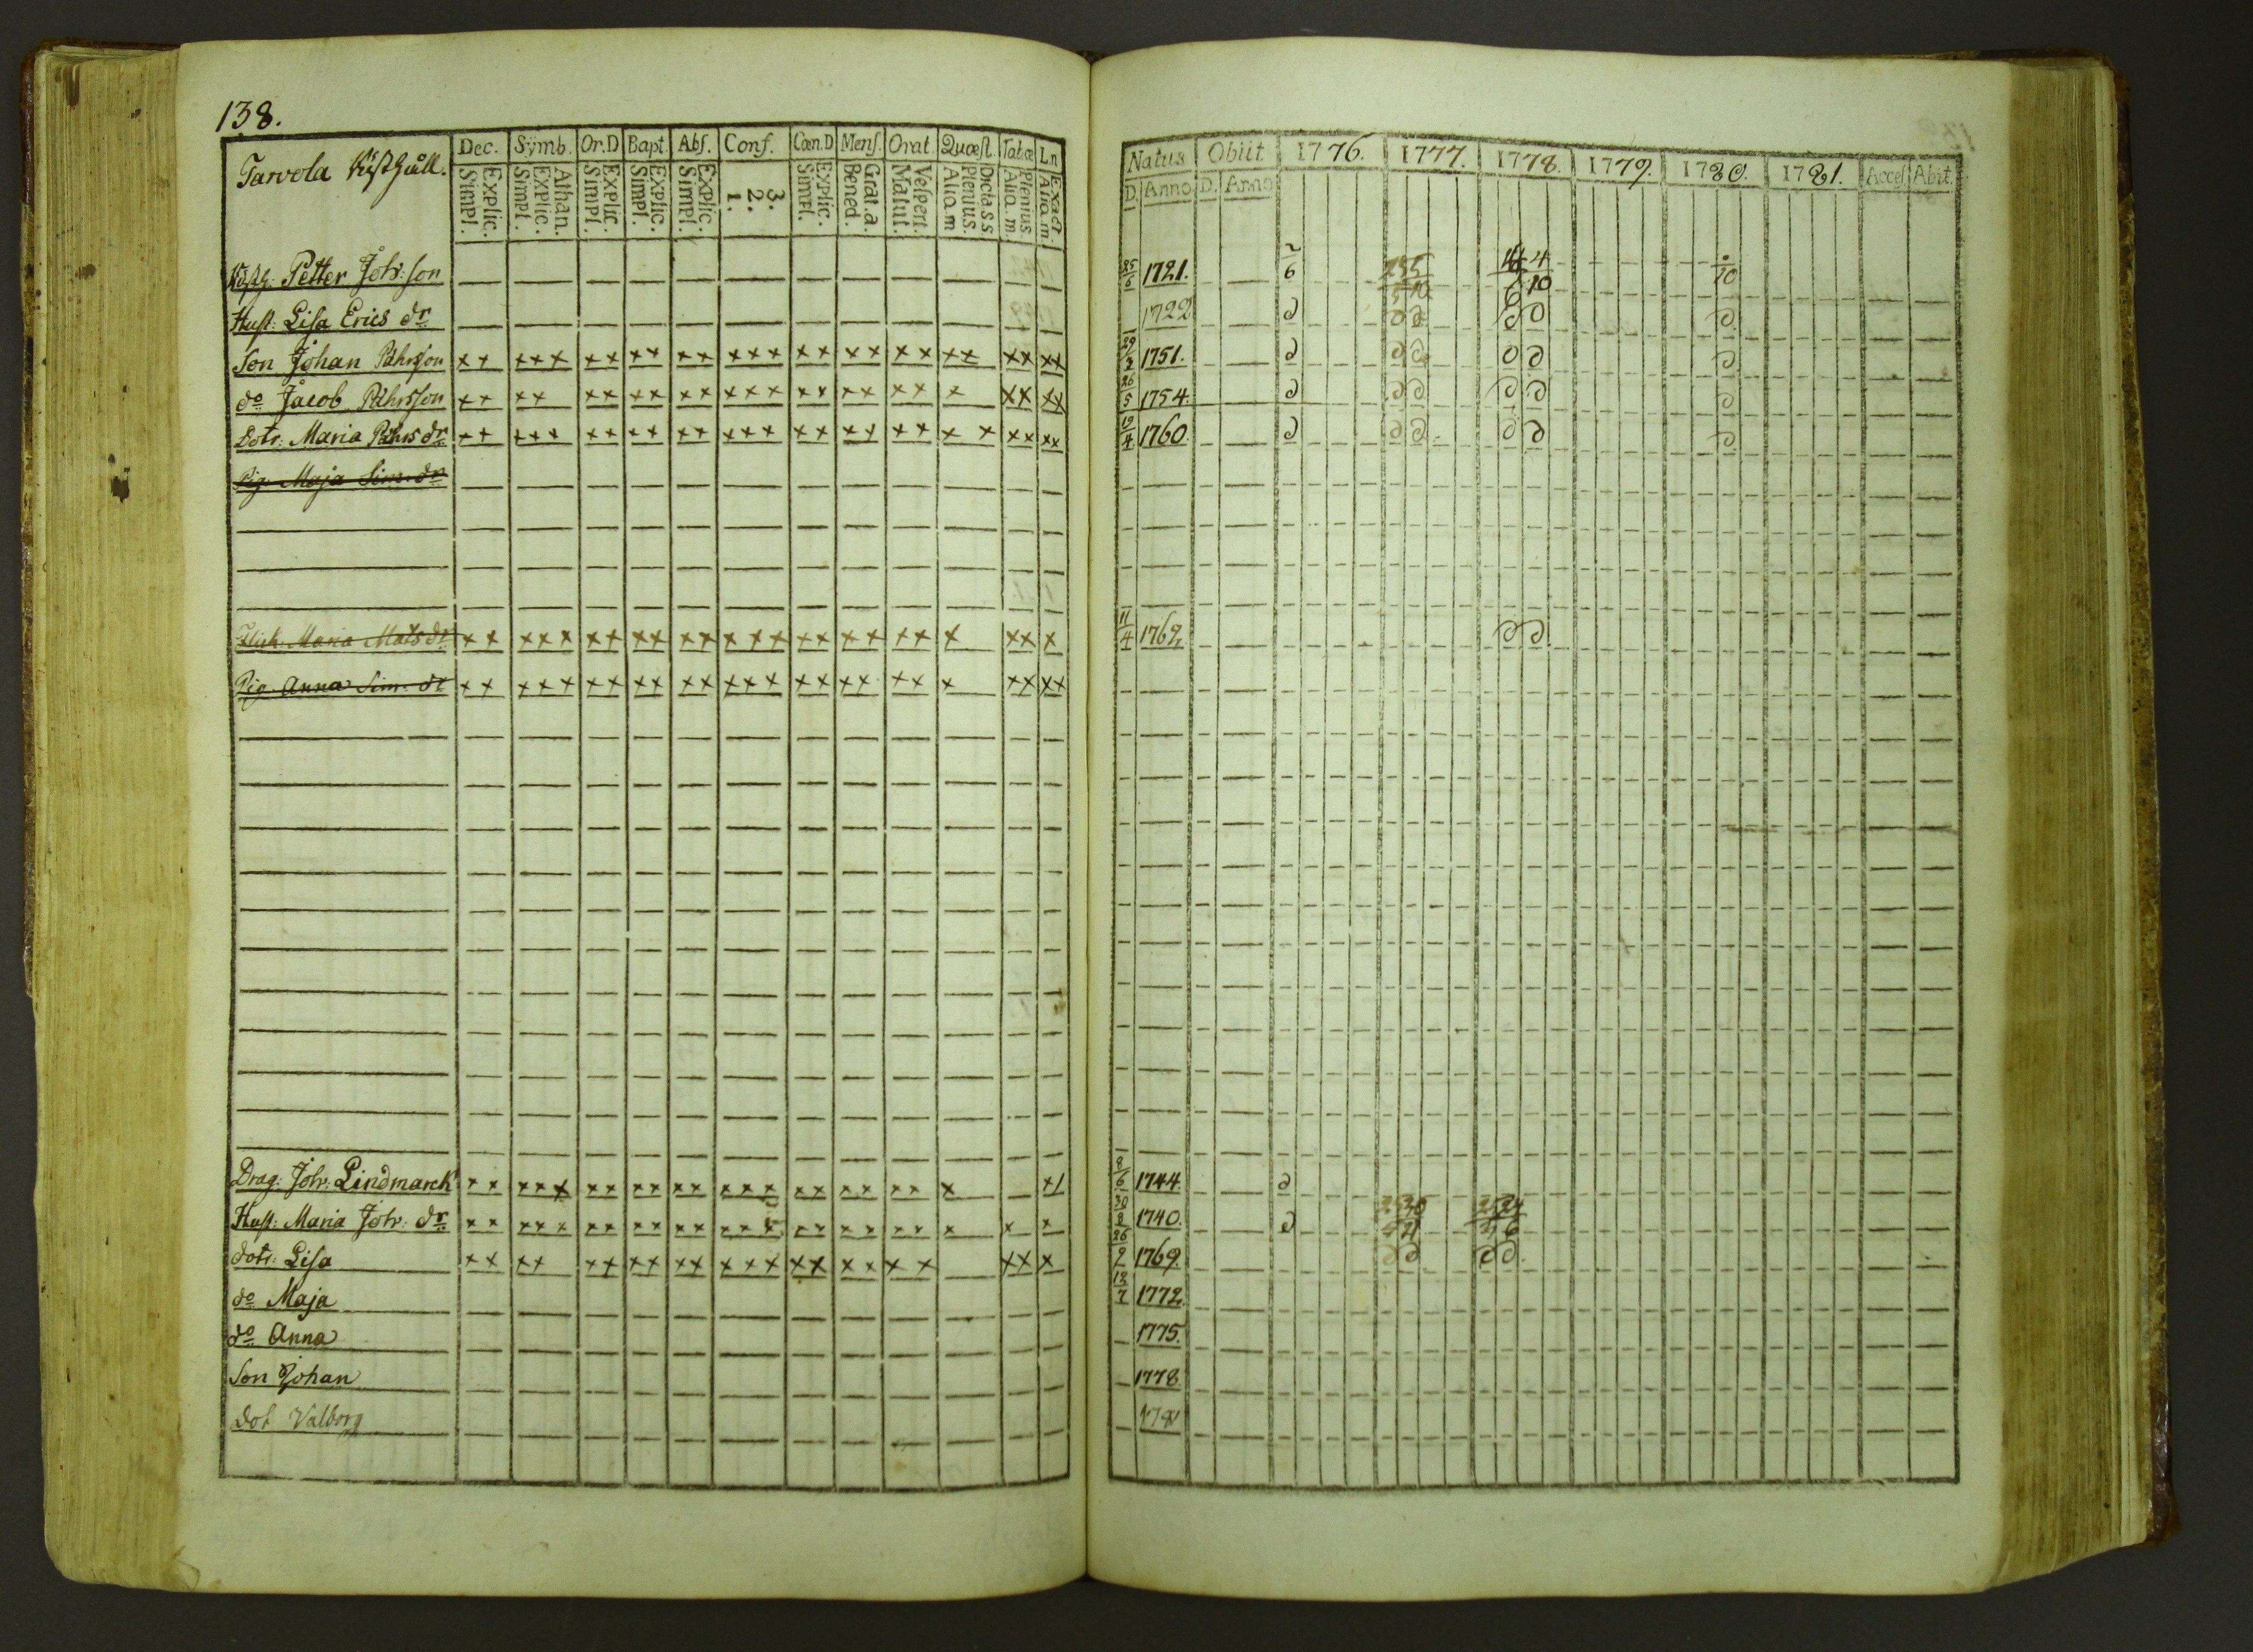 138.
Tarvola Rusthåll.
Dec. Sÿmb. Or.D Bapt. Abs. Conf. Cœn.D Mens. Orat. Quæst. Tabæ Ln
Explic. Simpl. Athan. Explic. Simpl. Explic. Simpl. Explic. Simpl. Explic. Simpl. 3. 2. 1. Explic. Simpl. Grat. a. Bened. Vespert. Matut. Dicta s.s. Plenius. Aliq. m Plenius Aliq. m. Exact Aliq. m.
Natus Obiit 1776. 1777. 1778. 1779. 1780. 1781. Acces Abit.
D. Anno D. Anno
Petter Joh:son — — — — — — — — — — — — 25/6 1721. 6 10 4 10 10
Hust: Lisa Erics dr — — — — — — — — — — — — 1722
Son Johan Pährsson ×× ××× ×× ×× ×× ××× ×× ×× ×× ×× ×× ×× 29/3 1751.
do Jacob Pährsson ×× ×× ×× ×× ×× ××× ×× ×× ×× × ×× ×× 26/5 1754.
Dotr: Maria Pährs dr ×× ××× ×× ×× ×× ××× ×× ×× ×× ×× ×× ×× 19/4 1760.
Pig. Maja Sim: dr
Maria Mats dr ×× ××× ×× ×× ×× ××× ×× ×× ×× × ×× × 11/4 1762
Pig. Anna Sim: dr ×× ××× ×× ×× ×× ××× ×× ×× ×× × ×× ××
Drag: Joh: Lindmarck ×× ××× ×× ×× ×× ××× ×× ×× ×× × 8/6 1744.
Hust: Maria Joh: dr ×× ××× ×× ×× ×× ××× ×× ×× ×× × × × 30/8 1740.
dotr: Lisa ×× ×× ×× ×× ×× ××× ×× ×× ×× ×× × 26/9 1769.
do Maja 18/7 1772
do Anna 1775.
Son Johan 1778
Dot Valborg